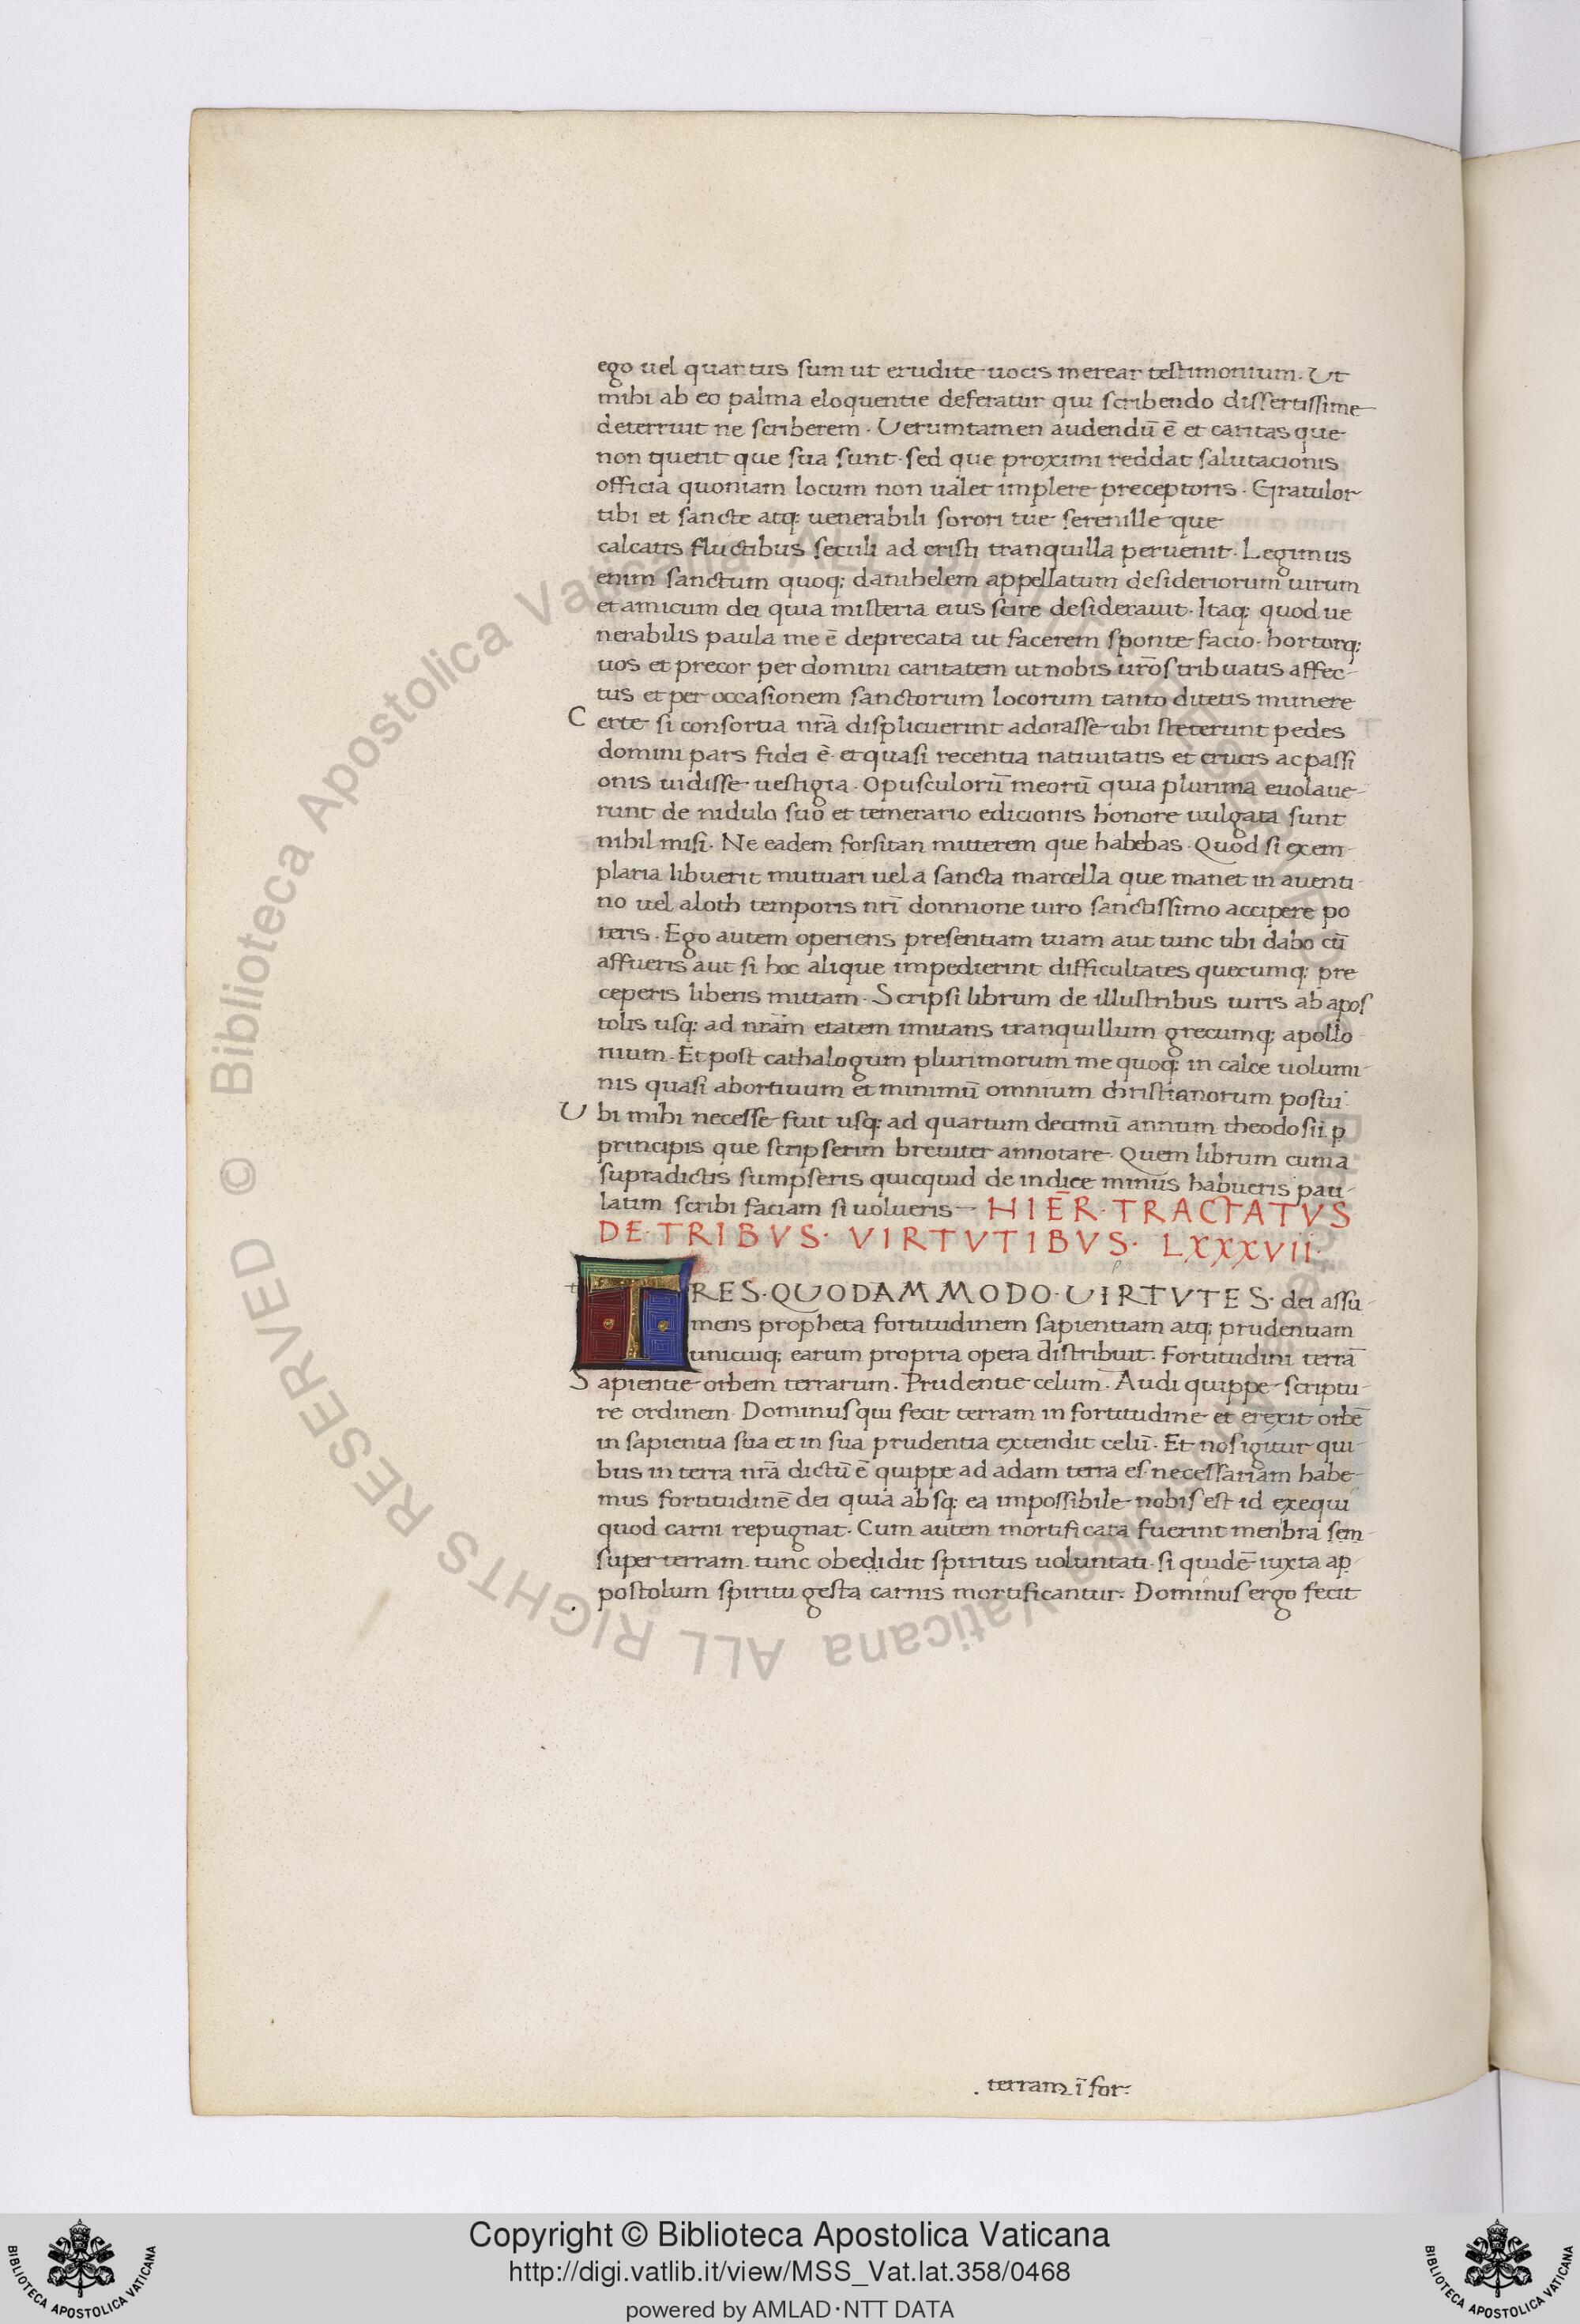 ego uel quartus sum ut erudite uocis merear testimonium. Ut
mihi ab eo palma eloquentie deferatur qui scribendo dissertissime
deterruit ne scriberem. Uerumtamen audendū ē et caritas que
non querit que sua sunt. sed que proximi reddat salutacionis
officia quoniam locum non ualet implere preceptoris. Gratulor
tibi et sancte atq; uenerabili sorori tue serenille que
calcatis fluctibus seculi ad cristi tranquilla peruenit. Legimus
enim sanctum quoq; danihelem appellatum desideriorum uirum
et amicum dei quia misteria eius scire desiderauit. Itaq; quod ue
nerabilis paula me ē deprecata ut facerem sponte facio. hortorq;
uos et precor per domini caritatem ut nobis ur̄os tribuatis affec-
tus et per occasionem sanctorum locorum tanto ditetis munere
Certe si consortia nr̄a displicuerint adorasse ubi steterunt pedes
domini pars fidei ē. et quasi recentia natiuitatis et crucis ac passi
onis uidisse uestigia. Opusculorū meorū quia plurima euolaue-
runt de nidulo suo et temerario edicionis honore uulgata sunt
nihil misi. Ne eadem forsitan mitterem que habebas. Quod si exem-
plaria libuerit mutuari uel a sancta marcella que manet in auenti-
no uel a loth temporis nr̄i domnione uiro sanctissimo accipere po
teris. Ego autem operiens presentiam tuam aut tunc tibi dabo cū
affueris aut si hoc alique impedierint difficultates quecumq; pre
ceperis libens mittam. Scripsi librum de illustribus uiris ab apos
tolis usq; ad nr̄am etatem imitans tranquillum grecumq; apollo
nium. Et post cathalogum plurimorum me quoq; in calce uolumi-
nis quasi abortiuum et minimū omnium christianorum posui.
Ubi mihi necesse fuit usq; ad quartum decimū annum theodosii p
principis que scripserim breuiter annotare. Quem librum cum a
supradictis sumpseris quicquid de indice minus habueris pau-
latim scribi faciam si uolueris— HIĒR. TRACTATVS
DE. TRIBVS. VIRTVTIBVS. LXXXVII.
TRES. QUODAMMODO. UIRTVTES. dei assu-
mens propheta fortitudinem sapientiam atq; prudentiam
unicuiq; earum propria opera distribuit. Fortitudini terrā
Sapientie orbem terrarum. Prudentie celum. Audi quippe scriptu-
re ordinem. Dominus qui fecit terram in fortitudine et erexit orbē
in sapientia sua et in sua prudentia extendit celū. Et nos igitur qui-
bus in terra nr̄a dictū ē quippe ad adam terra es. necessariam habe-
mus fortitudinē dei quia absq; ea impossibile nobis est id exequi
quod carni repugnat. Cum autem mortificata fuerint menbra sem-
super terram. tunc obedidit spiritus uoluntati. si quidē iuxta ap-
postolum spiritu gesta carnis mortificantur. Dominus ergo fecit
. terram ī for:
© Biblioteca Apostolica Vaticana ALL RIGHTS RESERVED
Copyright © Biblioteca Apostolica Vaticana
http://digi.vatlib.it/view/MSS_Vat.lat.358/0468
powered by AMLAD·NTT DATA
BIBLIOTECA APOSTOLICA VATICANA
BIBLIOTECA APOSTOLICA VATICANA